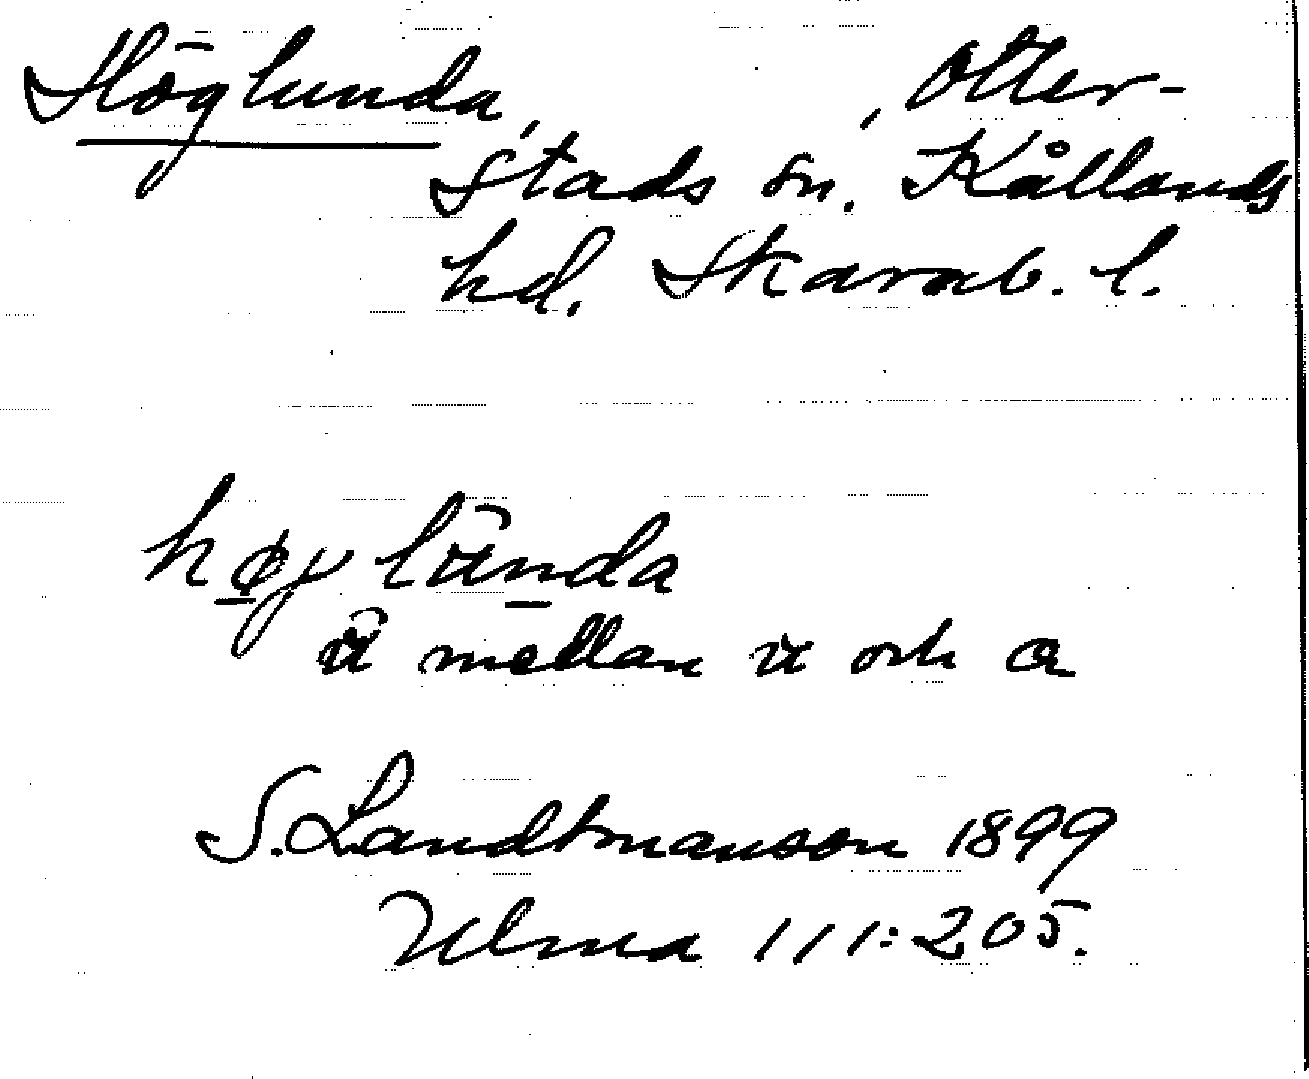 Höglunda, Otter-
stads sn. Kållands
hd. Skarab. l.
høylunda
mellan u och a
S. Landtmanson 1899
Ulma 111:205.